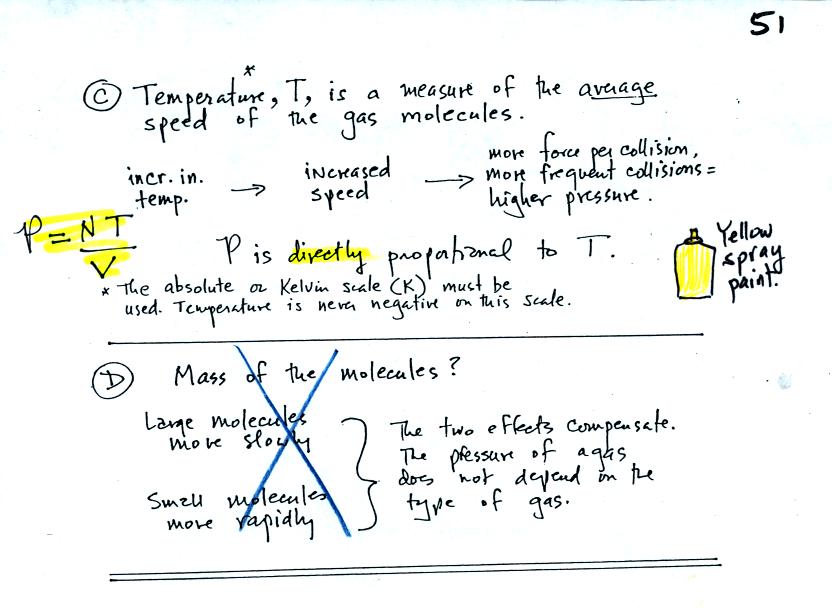 51
Ⓒ Temperature*, T, is a measure of the average
speed of the gas molecules.
incr. in. → increased → more force per collision,
temp. speed more frequent collisions =
higher pressure.
P = NT
V
P is directly proportional to T.
Yellow
spray
paint.
* The absolute or Kelvin scale (K) must be
used. Temperature is never negative on this scale.
Ⓓ Mass of the molecules?
Large molecules
move slowly
Small molecules
move rapidly
The two effects compensate.
The pressure of a gas
does not depend on the
type of gas.